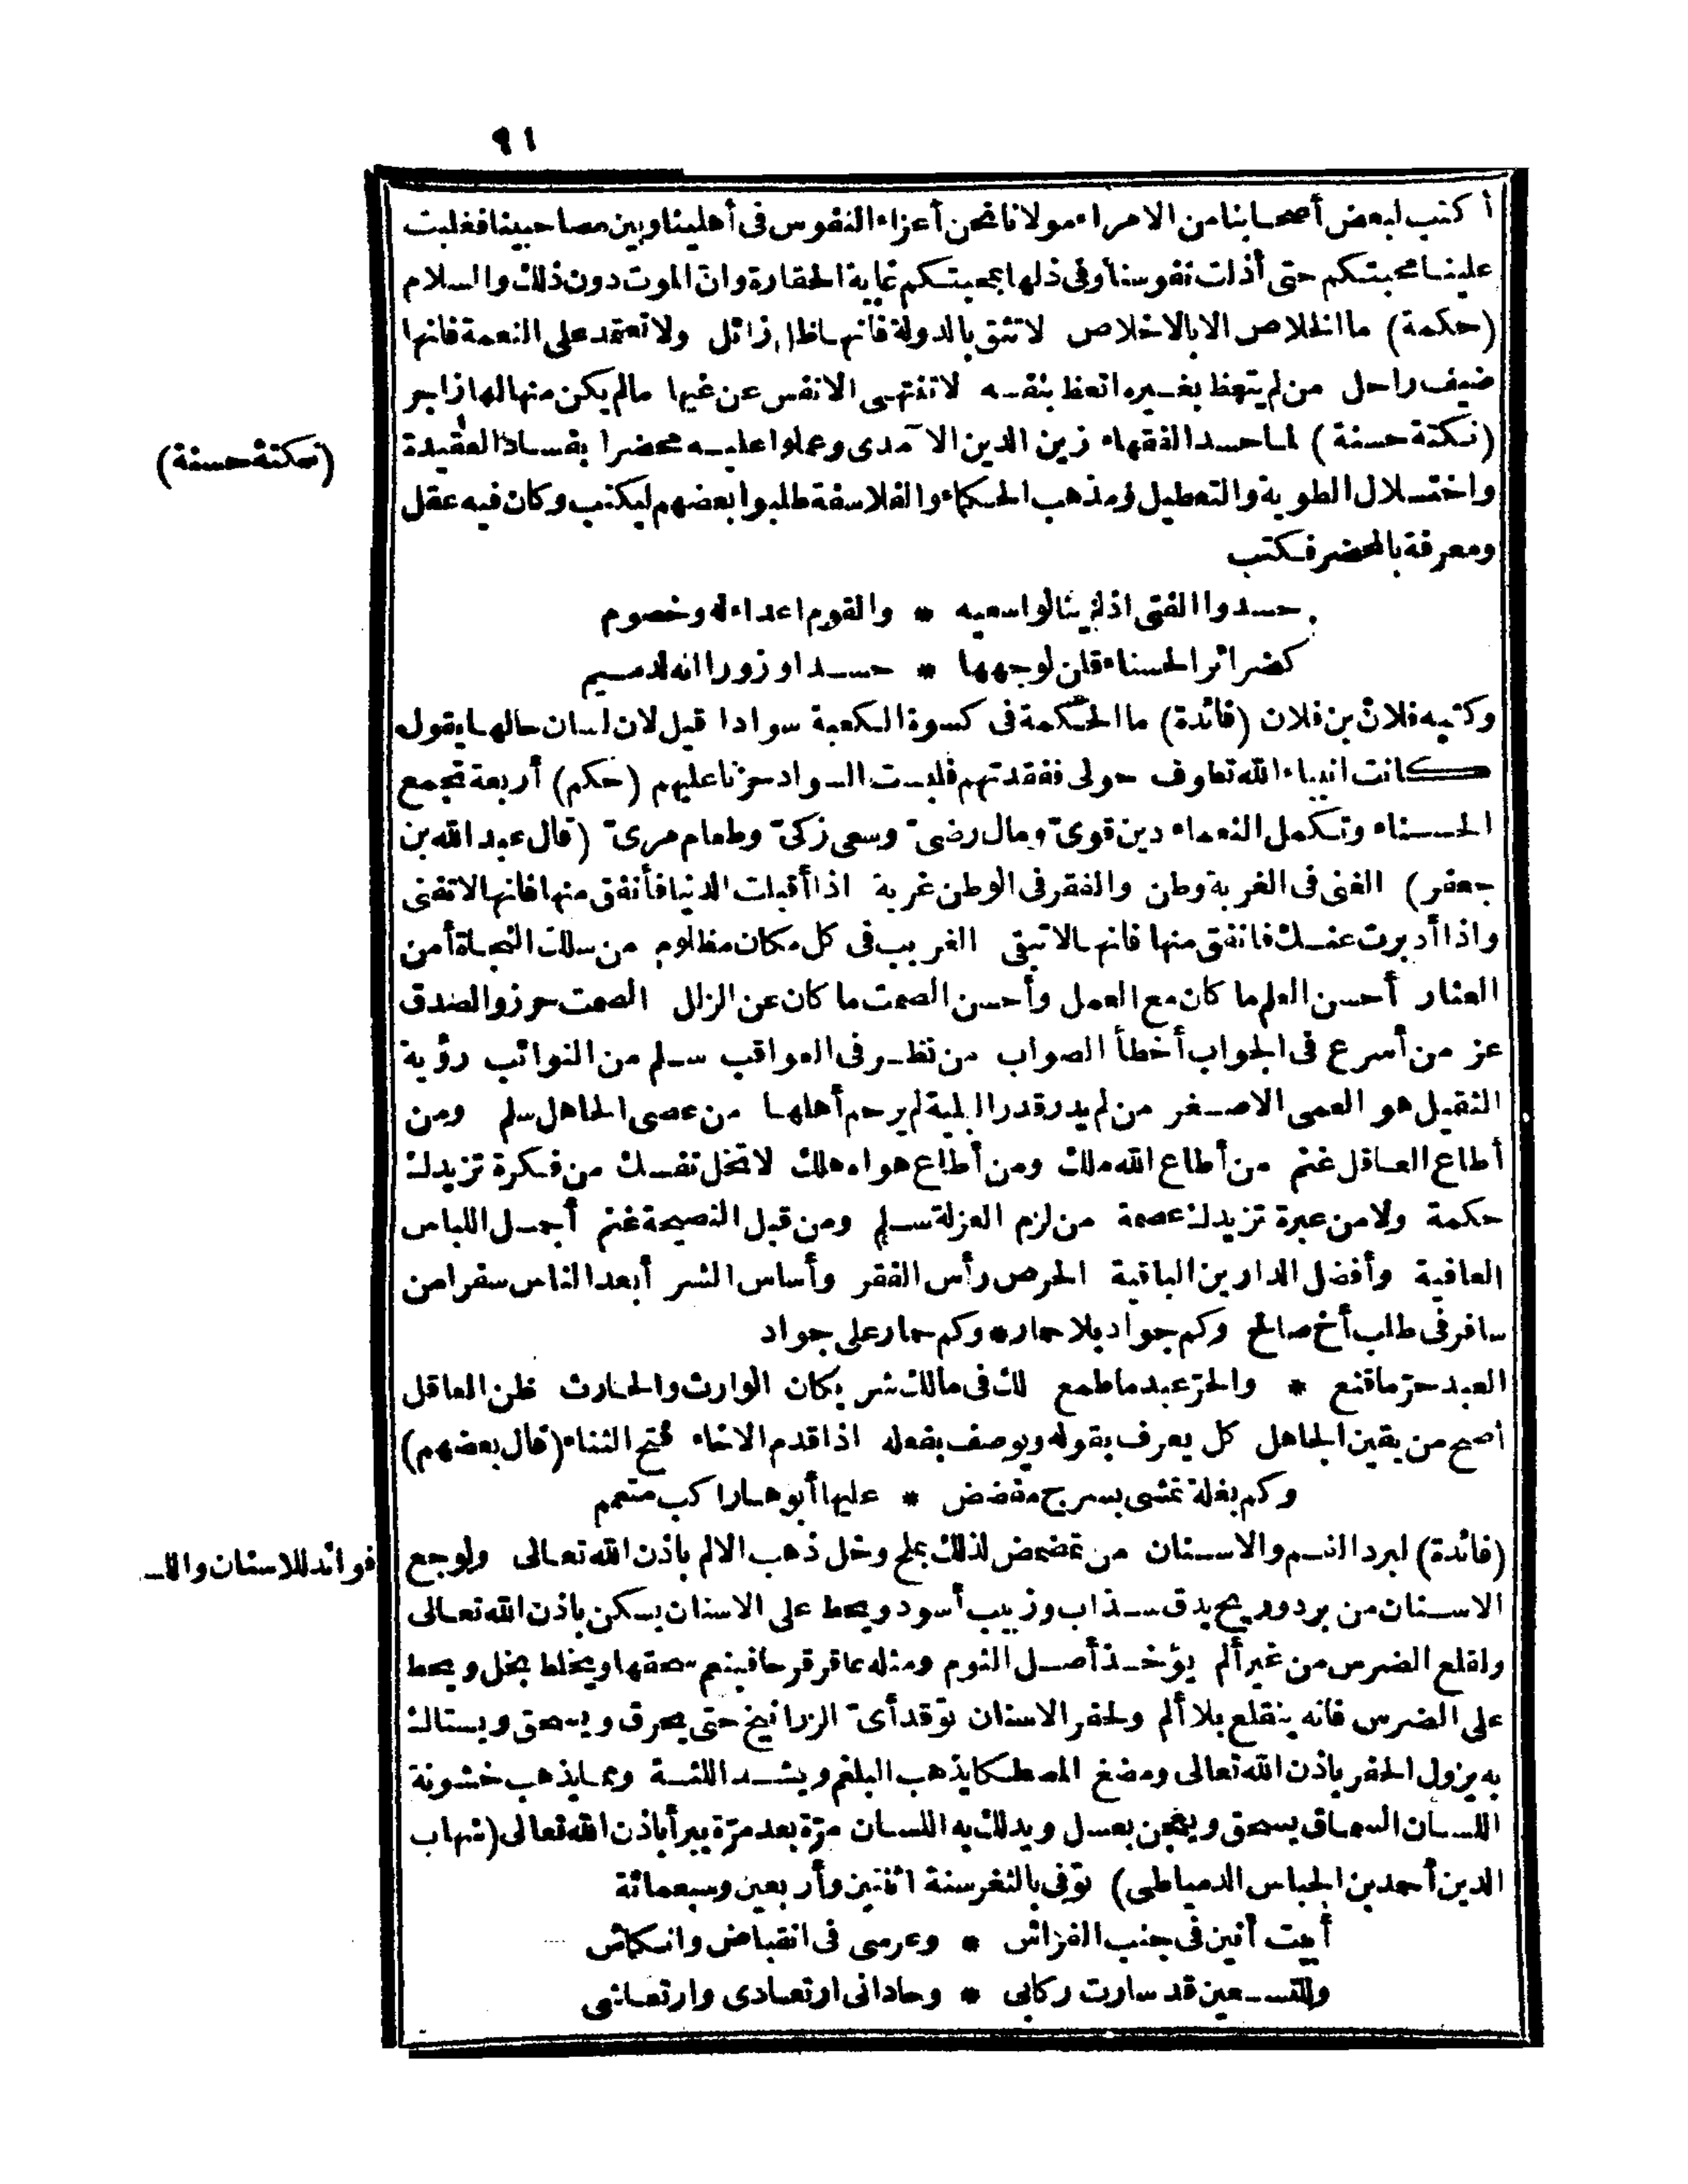 ٩١
أكتب لبعض أصحابنا من الامراء مولانا نحن أعزاء النفوس فى أهلينا وبين مصاحبينا فغلبت
علينا محبتكم حتى أذلت نفوسنا وفى ذلها بمحبتكم غاية الحقارة وانّ الموت دون ذلك والسلام
(حكمة) ما الخلاص الا بالاخلاص لا تثق بالدولة فانها ظل زائل ولا تعتمد على النعمة فانها
ضيف راحل من لم يتعظ بغيره اتعظ بنفسه لا تنتهى الانفس عن غيها مالم يكن منها لها زاجر
(نكتة حسنة) لما حسد الفقهاء زين الدين الآمدى وعملوا عليه محضرا بفساد العقيدة
(نكتة حسنة)
واختلال الطوية والتعطيل ومذهب الحكماء والفلاسفة طلبوا بعضهم ليكتب وكان فيه عقل
ومعرفة بالمحضر فكتب
حسدوا الفتى اذ لم ينالوا سعيه * والقوم اعداء له وخصوم
كضرائر الحسناء قلن لوجهها * حسدا وزورا انه لدميم
وكتبه فلان بن فلان (فائدة) ما الحكمة فى كسوة الكعبة سوادا قيل لان لسان حالها يقول
كانت انبياء الله تطوف حولى ففقدتهم فلبست السواد حزنا عليهم (حكم) أربعة تجمع
الحسناء وتكمل النعماء دين قوىّ ومال رضىّ وسعى زكىّ وطعام مرىّ (قال عبد الله بن
جعفر) الغنى فى الغربة وطن والفقر فى الوطن غربة اذا أقبلت الدنيا فأنفق منها فانها لا تفنى
واذا أدبرت عنك فانفق منها فانها لا تبقى الغريب فى كل مكان مظلوم من سلك النجاة أمن
العثار أحسن العلم ما كان مع العمل وأحسن الصمت ما كان عن الزلل الصمت حرز والصدق
عز من أسرع فى الجواب أخطأ الصواب من نظر فى العواقب سلم من النوائب رؤية
الثقيل هو العمى الاصغر من لم يدر قدر البلية لم يرحم أهلها من عصى الجاهل سلم ومن
أطاع العاقل غنم من أطاع الله ملك ومن أطاع هواه هلك لا تخل نفسك من فكرة تزيدك
حكمة ولا من عبرة تزيدك عصمة من لزم العزلة سلم ومن قبل النصيحة غنم أجمل اللباس
العافية وأفضل الدارين الباقية الحرص رأس الفقر وأساس الشر أبعد الناس سفرا من
سافر فى طلب أخ صالح وكم جواد بلا حمار * وكم حمار على جواد
العبد حرّ ما قنع * والحرّ عبد ما طمع لك فى مالك شريكان الوارث والحارث ظن العاقل
أصح من يقين الجاهل كل يعرف بقوله ويوصف بفعله اذا قدم الاخاء قبح الثناء (قال بعضهم)
وكم بغلة تمشى بسرج مفضض * عليها أبوها راكب متعمم
(فائدة) لبرد الفم والاسنان من تمضمض لذلك بملح وخل ذهب الالم باذن الله تعالى ولوجع
فوائد للاسنان والل
الاسنان من برد وريح يدق سذاب وزبيب أسود ويحط على الاسنان يسكن باذن الله تعالى
ولقلع الضرس من غير ألم يؤخذ أصل الثوم ومثله عاقرقرحا فينعم سحقها ويخلط بخل ويحط
على الضرس فانه ينقلع بلا ألم ولحفر الاسنان توقد أىّ الزرانيخ حتى يحرق ويسحق ويستاك
به يزول الحفر باذن الله تعالى ومضغ المصطكا يذهب البلغم ويشد اللثة ومما يذهب خشونة
اللسان السماق يسحق ويعجن بعسل ويدلك به اللسان مرّة بعد مرّة يبرأ باذن الله تعالى (شهاب
الدين أحمد بن الجباس الدمياطى) توفى بالثغر سنة اثنتين وأربعين وسبعمائة
أبيت أنين فى جنب الفراش * وعرسى فى انقباض وانكماش
وللتسعين قد سارت ركابى * وحادانى ارتعادى وارتعاشى